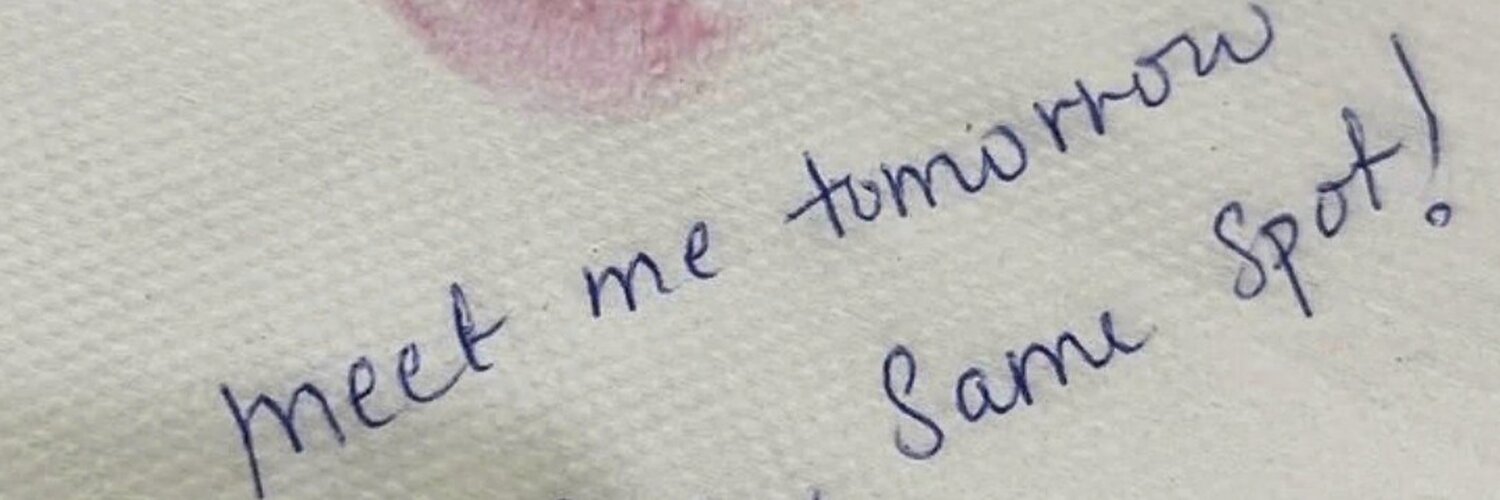 meet me tomorrow
Same Spot!